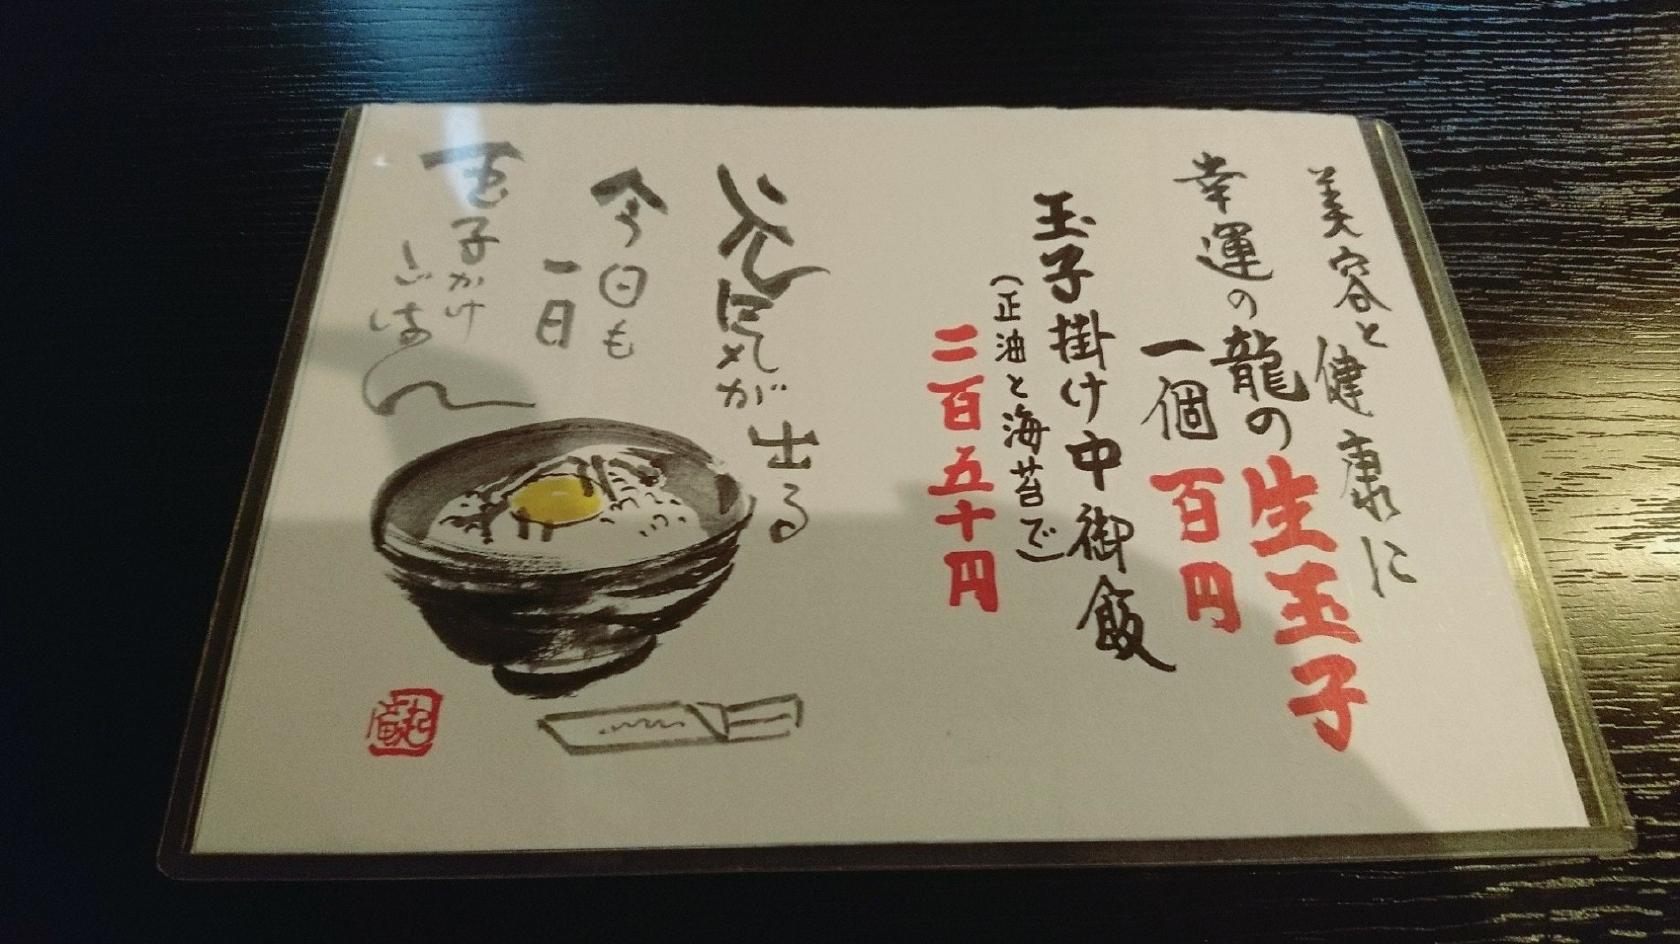 美容と健康に
幸運の龍の生玉子
一個 百円
玉子掛け中御飯
(正油と海苔で)
二百五十円
元気が出る
今日も
一日
玉子かけ
ごはん